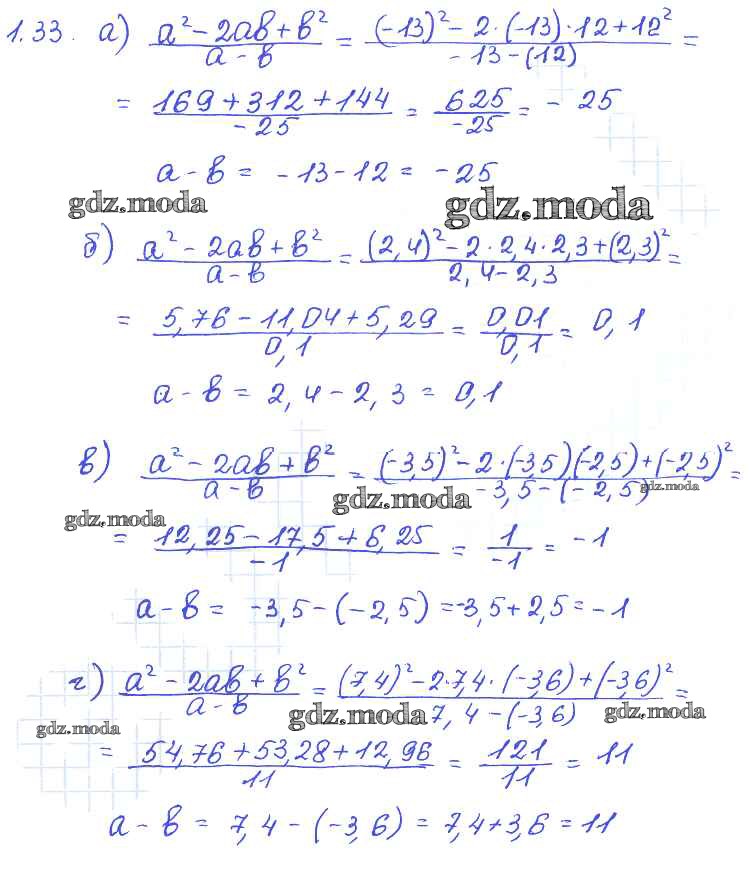 1.33. а) a² - 2ab + b² / a - b = (-13)² - 2·(-13)·12 + 12² / -13 - (12) =
= 169 + 312 + 144 / -25 = 625 / -25 = - 25
a - b = -13 - 12 = -25
gdz.moda gdz.moda
б) a² - 2ab + b² / a - b = (2,4)² - 2·2,4·2,3 + (2,3)² / 2,4 - 2,3 =
= 5,76 - 11,04 + 5,29 / 0,1 = 0,01 / 0,1 = 0,1
a - b = 2,4 - 2,3 = 0,1
в) a² - 2ab + b² / a - b = (-3,5)² - 2·(-3,5)(-2,5) + (-2,5)² / -3,5 - (-2,5) =
gdz.moda gdz.moda gdz.moda
= 12,25 - 17,5 + 6,25 / -1 = 1 / -1 = -1
a - b = -3,5 - (-2,5) = -3,5 + 2,5 = -1
г) a² - 2ab + b² / a - b = (7,4)² - 2·7,4·(-3,6) + (-3,6)² / 7,4 - (-3,6) =
gdz.moda gdz.moda gdz.moda
= 54,76 + 53,28 + 12,96 / 11 = 121 / 11 = 11
a - b = 7,4 - (-3,6) = 7,4 + 3,6 = 11